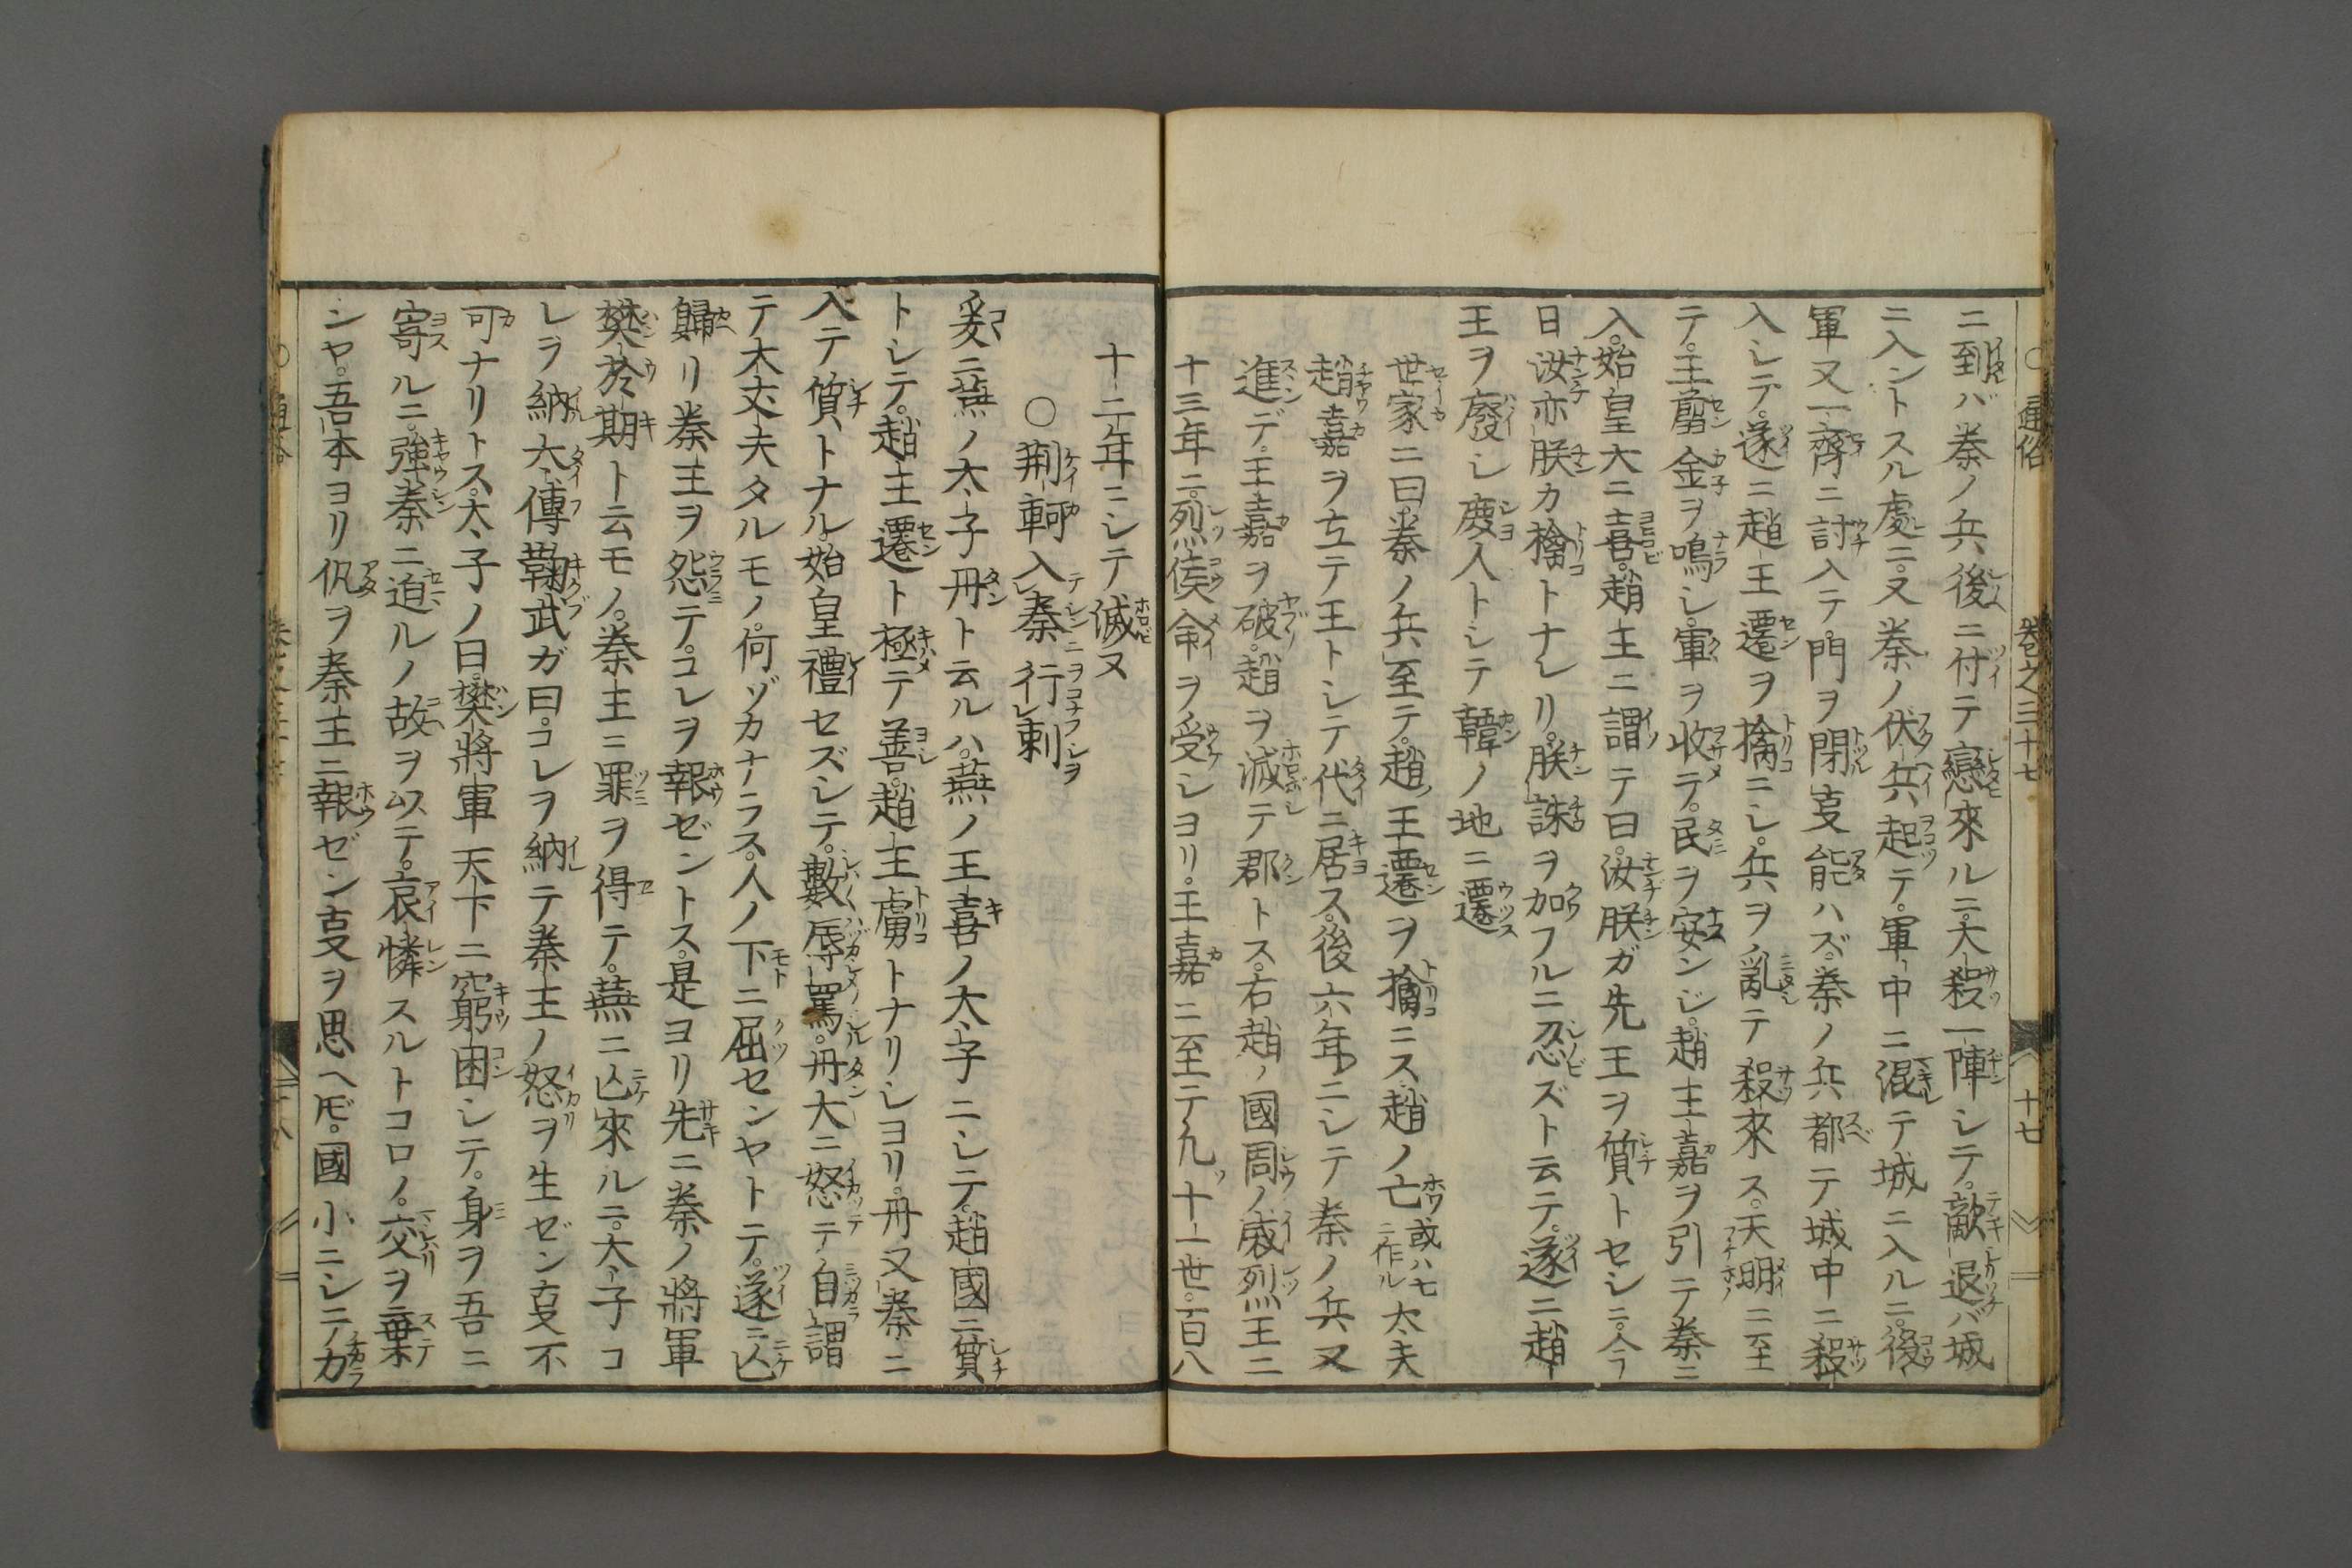 通俗 巻之三十七 十七
ニ到レバ秦ノ兵後ニ付テ戀來ルニ大殺一陣シテ。敵退バ城
ニ入ントスル處ニ。又秦ノ伏兵起テ。軍中ニ混テ城ニ入ルニ。後
軍又一齊ニ討入テ。門ヲ閉ヿ能ハズ。秦ノ兵都テ城中ニ殺
入シテ。遂ニ趙王遷ヲ擒ニシ。兵ヲ亂テ殺來ス。天明ニ至
テ。王翦金ヲ鳴シ。軍ヲ收テ。民ヲ安ンジ。趙王嘉ヲ引テ秦ニ
入。始皇大ニ喜。趙王ニ謂テ曰。汝朕ガ先王ヲ質トセシニ。今
日汝亦朕カ擒トナレリ。朕誅ヲ加フルニ忍ズト云テ。遂ニ趙
王ヲ廢シ庶人トシテ韓ノ地ニ遷
世家ニ曰秦ノ兵至テ。趙ノ王遷ヲ擒ニス趙ノ亡或ハ七ニ作ル大夫
趙嘉ヲ立テ王トシテ代ニ居ス。後六年ニシテ秦ノ兵又
進デ王嘉ヲ破。趙ヲ滅テ郡トス。右趙ノ國周ノ威烈王二
十三年ニ烈侯命ヲ受シヨリ。王嘉ニ至テ九ソ十一世。一百八
十二年ニシテ滅ヌ
○荊軻入秦行刺
爰ニ燕ノ太子丹ト云ルハ。燕ノ王喜ノ太子ニシテ。趙國ニ質
トシテ。趙王遷ト極テ善。趙王虜トナリシヨリ。丹又秦ニ
入テ質トナル。始皇禮セズシテ。數辱罵。丹大ニ怒テ自謂
テ大丈夫タルモノ。何ゾカナラス。人ノ下ニ屈センヤトテ。遂ニ亡
歸リ秦王ヲ怨テ。コレヲ報ゼントス。是ヨリ先ニ秦ノ將軍
樊於期ト云モノ。秦王ニ罪ヲ得テ。燕ニ亡來ルニ。太子コ
レヲ納。太傅鞠武ガ曰。コレヲ納テ秦王ノ怒ヲ生ゼンヿ不
可ナリトス。太子ノ曰。樊將軍天下ニ窮困シテ。身ヲ吾ニ
寄ルニ。強秦ニ迫ルノ故ヲ以テ。哀憐スルトコロノ。交ヲ棄
ンヤ。吾本ヨリ仇ヲ秦王ニ報ゼンヿヲ思ヘ𪜈。國小ニシテ力